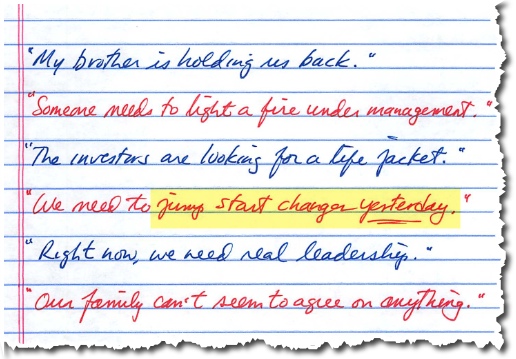 "My brother is holding us back."
"Someone needs to light a fire under management."
"The investors are looking for a life jacket."
"We need to jump start changes yesterday."
"Right now, we need real leadership."
"Our family can't seem to agree on anything."